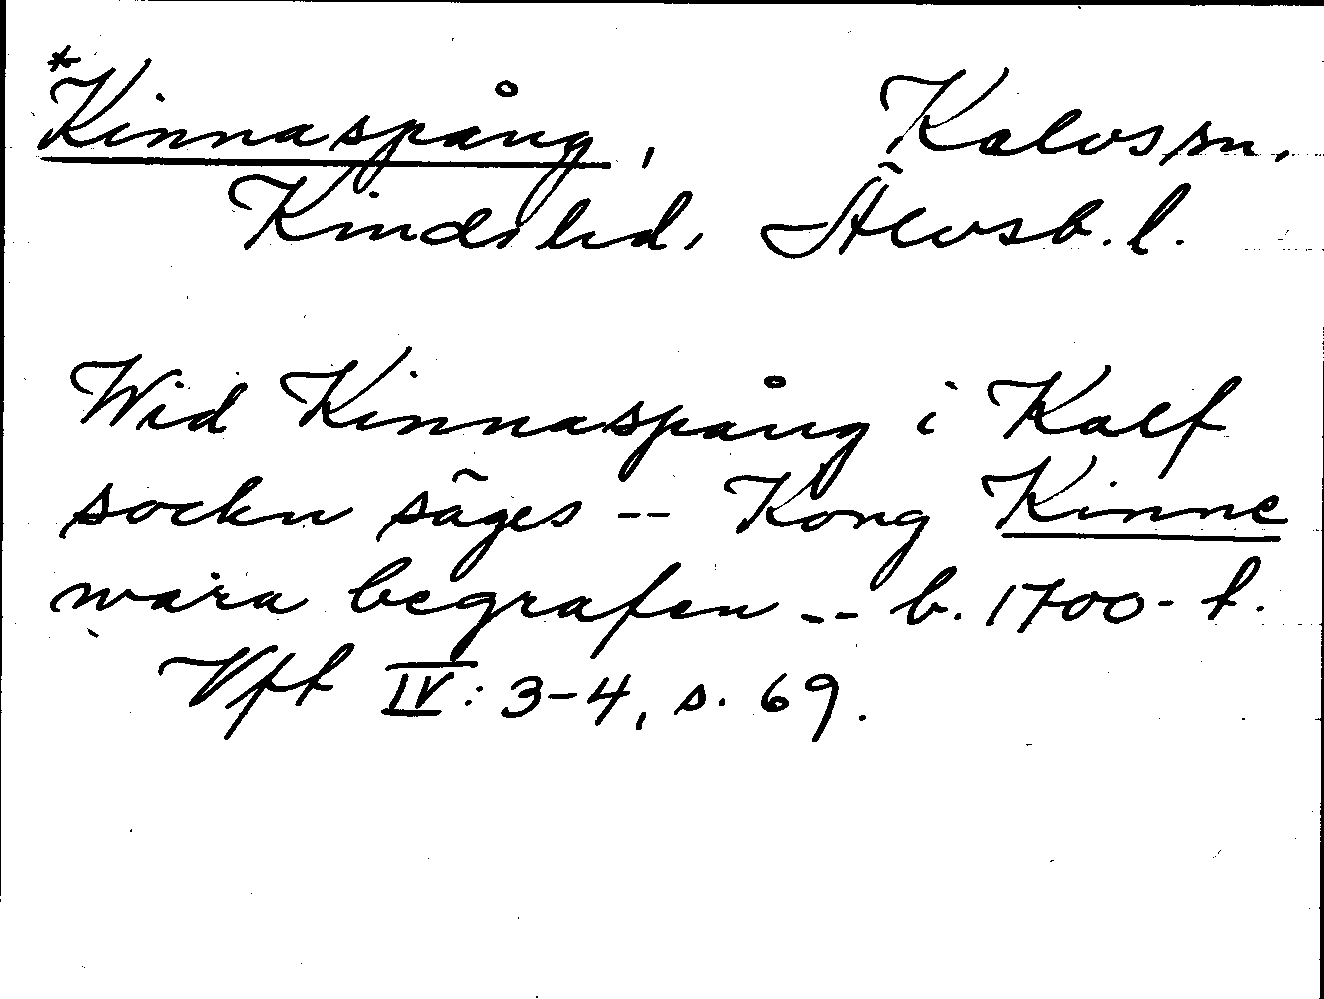 *Kinnaspång, Kalvs sn.
Kinds hd. Älvsb. l.
Wid Kinnaspång i Kalf
sockn säges -- Kong Kinne
wara begrafen -- b. 1700-t.
Vft IV: 3-4, s. 69.